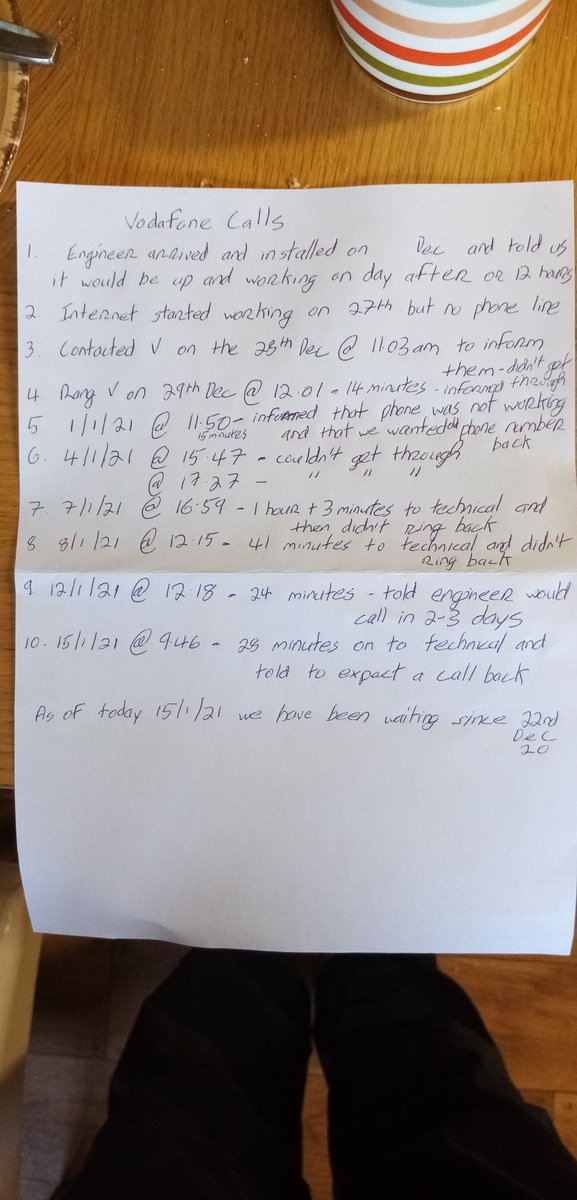 Vodafone Calls
1. Engineer arrived and installed on Dec and told us
it would be up and working on day after or 12 hours
2. Internet started working on 27th but no phone line
3. Contacted V on the 28th Dec @ 11.03am to inform
them - didn't get
through
4. Rang V on 29th Dec @ 12.01 - 14 minutes - informed
5 1/1/21 @ 11.50 - informed that phone was not working
15 minutes and that we wanted old phone number
back
6. 4/1/21 @ 15.47 - couldn't get through
@ 17.27 - " " "
7. 7/1/21 @ 16.59 - 1 hour + 3 minutes to technical and
then didn't ring back
8 8/1/21 @ 12.15 - 41 minutes to technical and didn't
ring back
9. 12/1/21 @ 12.18 - 24 minutes - told engineer would
call in 2-3 days
10. 15/1/21 @ 9.46 - 28 minutes on to technical and
told to expect a call back
As of today 15/1/21 we have been waiting since 22nd
Dec
20